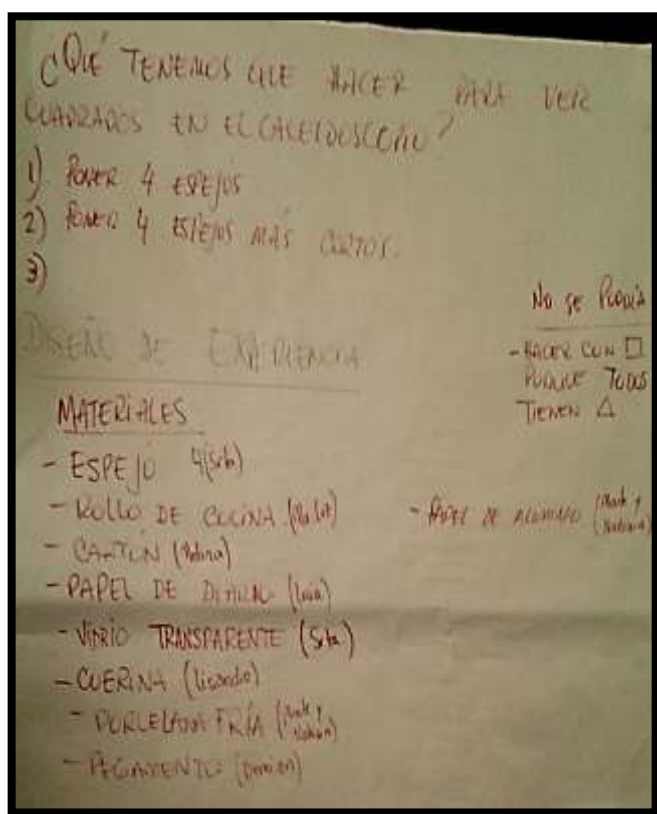 ¿QUÉ TENEMOS QUE HACER PARA VER
CUADRADOS EN EL CALEIDOSCOPIO?
1) PONER 4 ESPEJOS
2) PONER 4 ESPEJOS MÁS CORTOS.
3)
NO SE PODRÍA
- HACER CON □
PORQUE TODOS
TIENEN △
DISEÑO DE EXPERIENCIA
MATERIALES
- ESPEJO 4
- ROLLO DE COCINA
- PAPEL DE ALUMINIO
- CARTÓN
- PAPEL DE
- VIDRIO TRANSPARENTE
- CUERINA (Lisandro)
- PORCELANA FRÍA
- PEGAMENTO